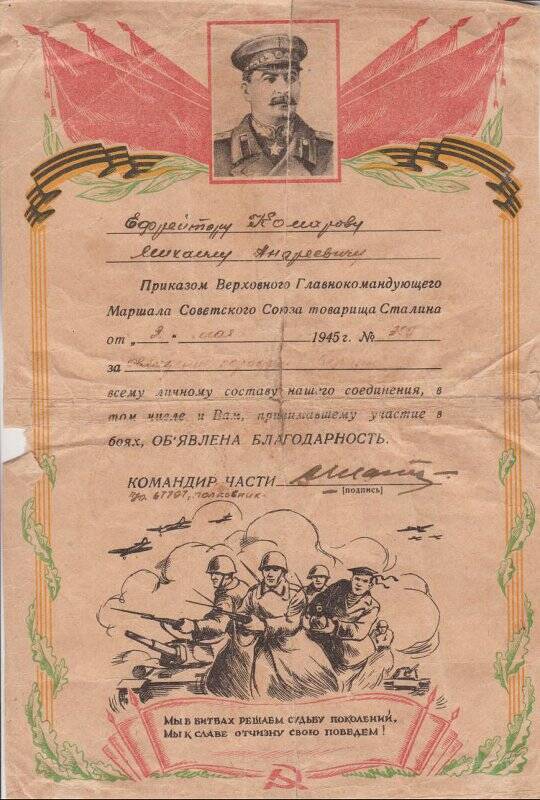 Ефрейтору Комарову
Михаилу Андреевичу
Приказом Верховного Главнокомандующего
Маршала Советского Союза товарища Сталина
от „2" мая 1945 г. №
за
всему личному составу нашего соединения, в
том числе и Вам, принимавшему участие в
боях, ОБ'ЯВЛЕНА БЛАГОДАРНОСТЬ.
КОМАНДИР ЧАСТИ
67797, полковник
[подпись]
Мы в битвах решаем судьбу поколений,
Мы к славе отчизну свою поведем!